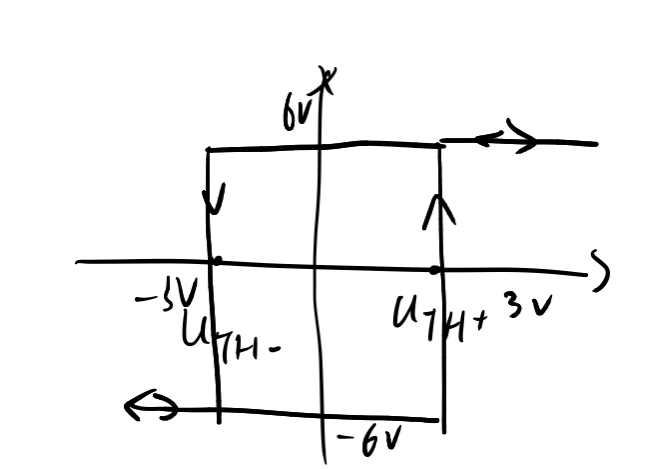 6V
-3V
U_TH-
U_TH+ 3V
-6V